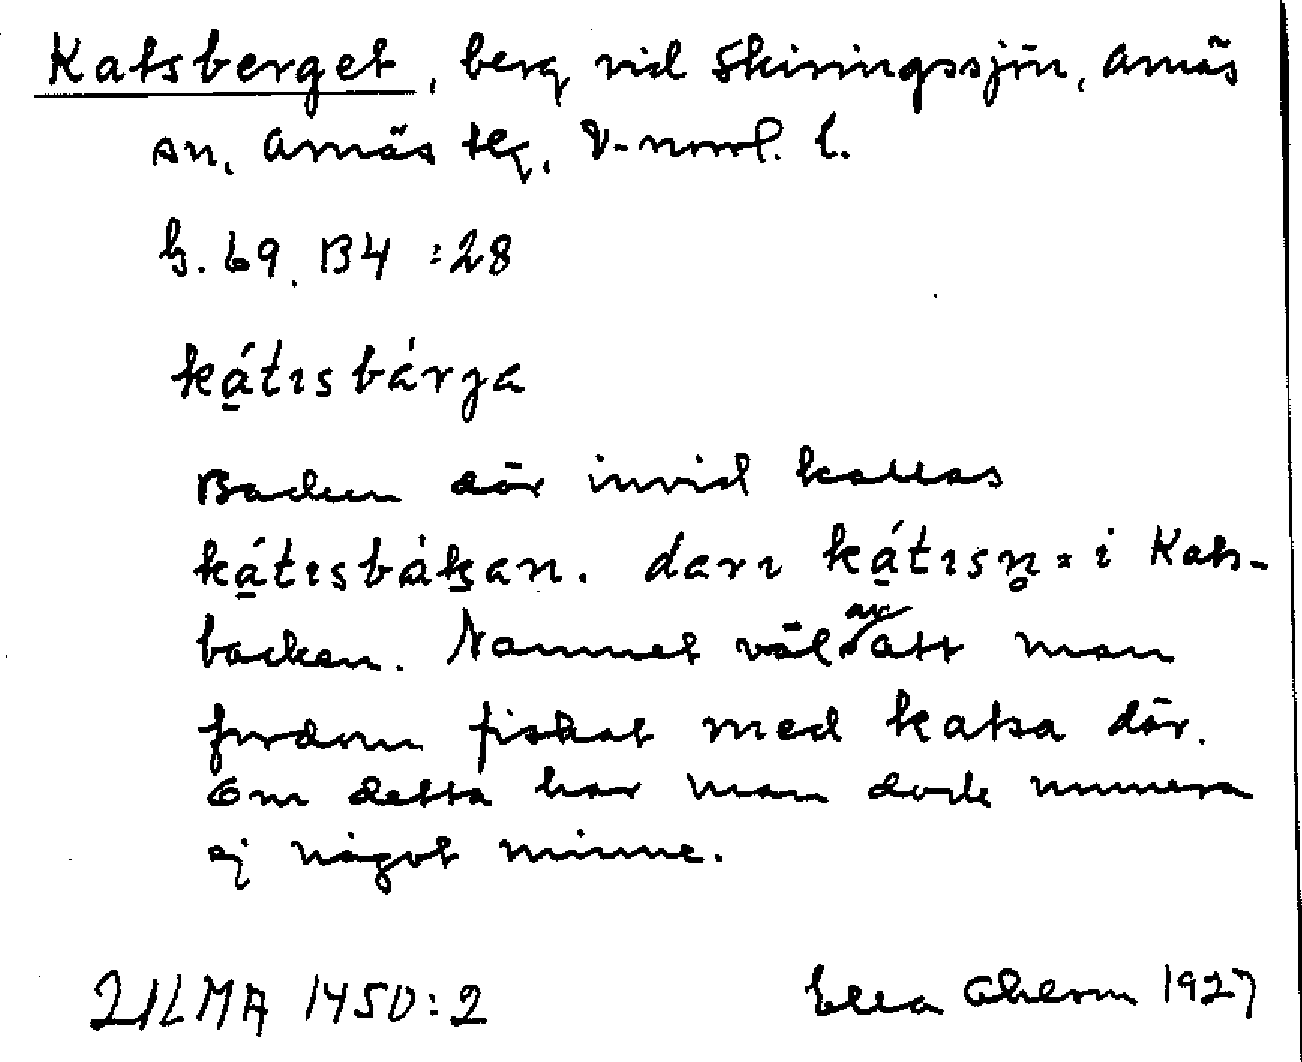 Katsberget, berg vid Skiringssjön, Arnäs
sn, Arnäs tlg, V-norrl. l.
G. 69. B4 :28
ká̱tısbárja
Backen där invid kallas
ká̱tısbákan. darı ká̱tısn̥ = i Kats-
backen. Namnet väl av att man
fordom fiskat med katsa där.
Om detta har man dock numera
ej något minne.
2 ULMA 1450:2 Ella Ohlson 1927